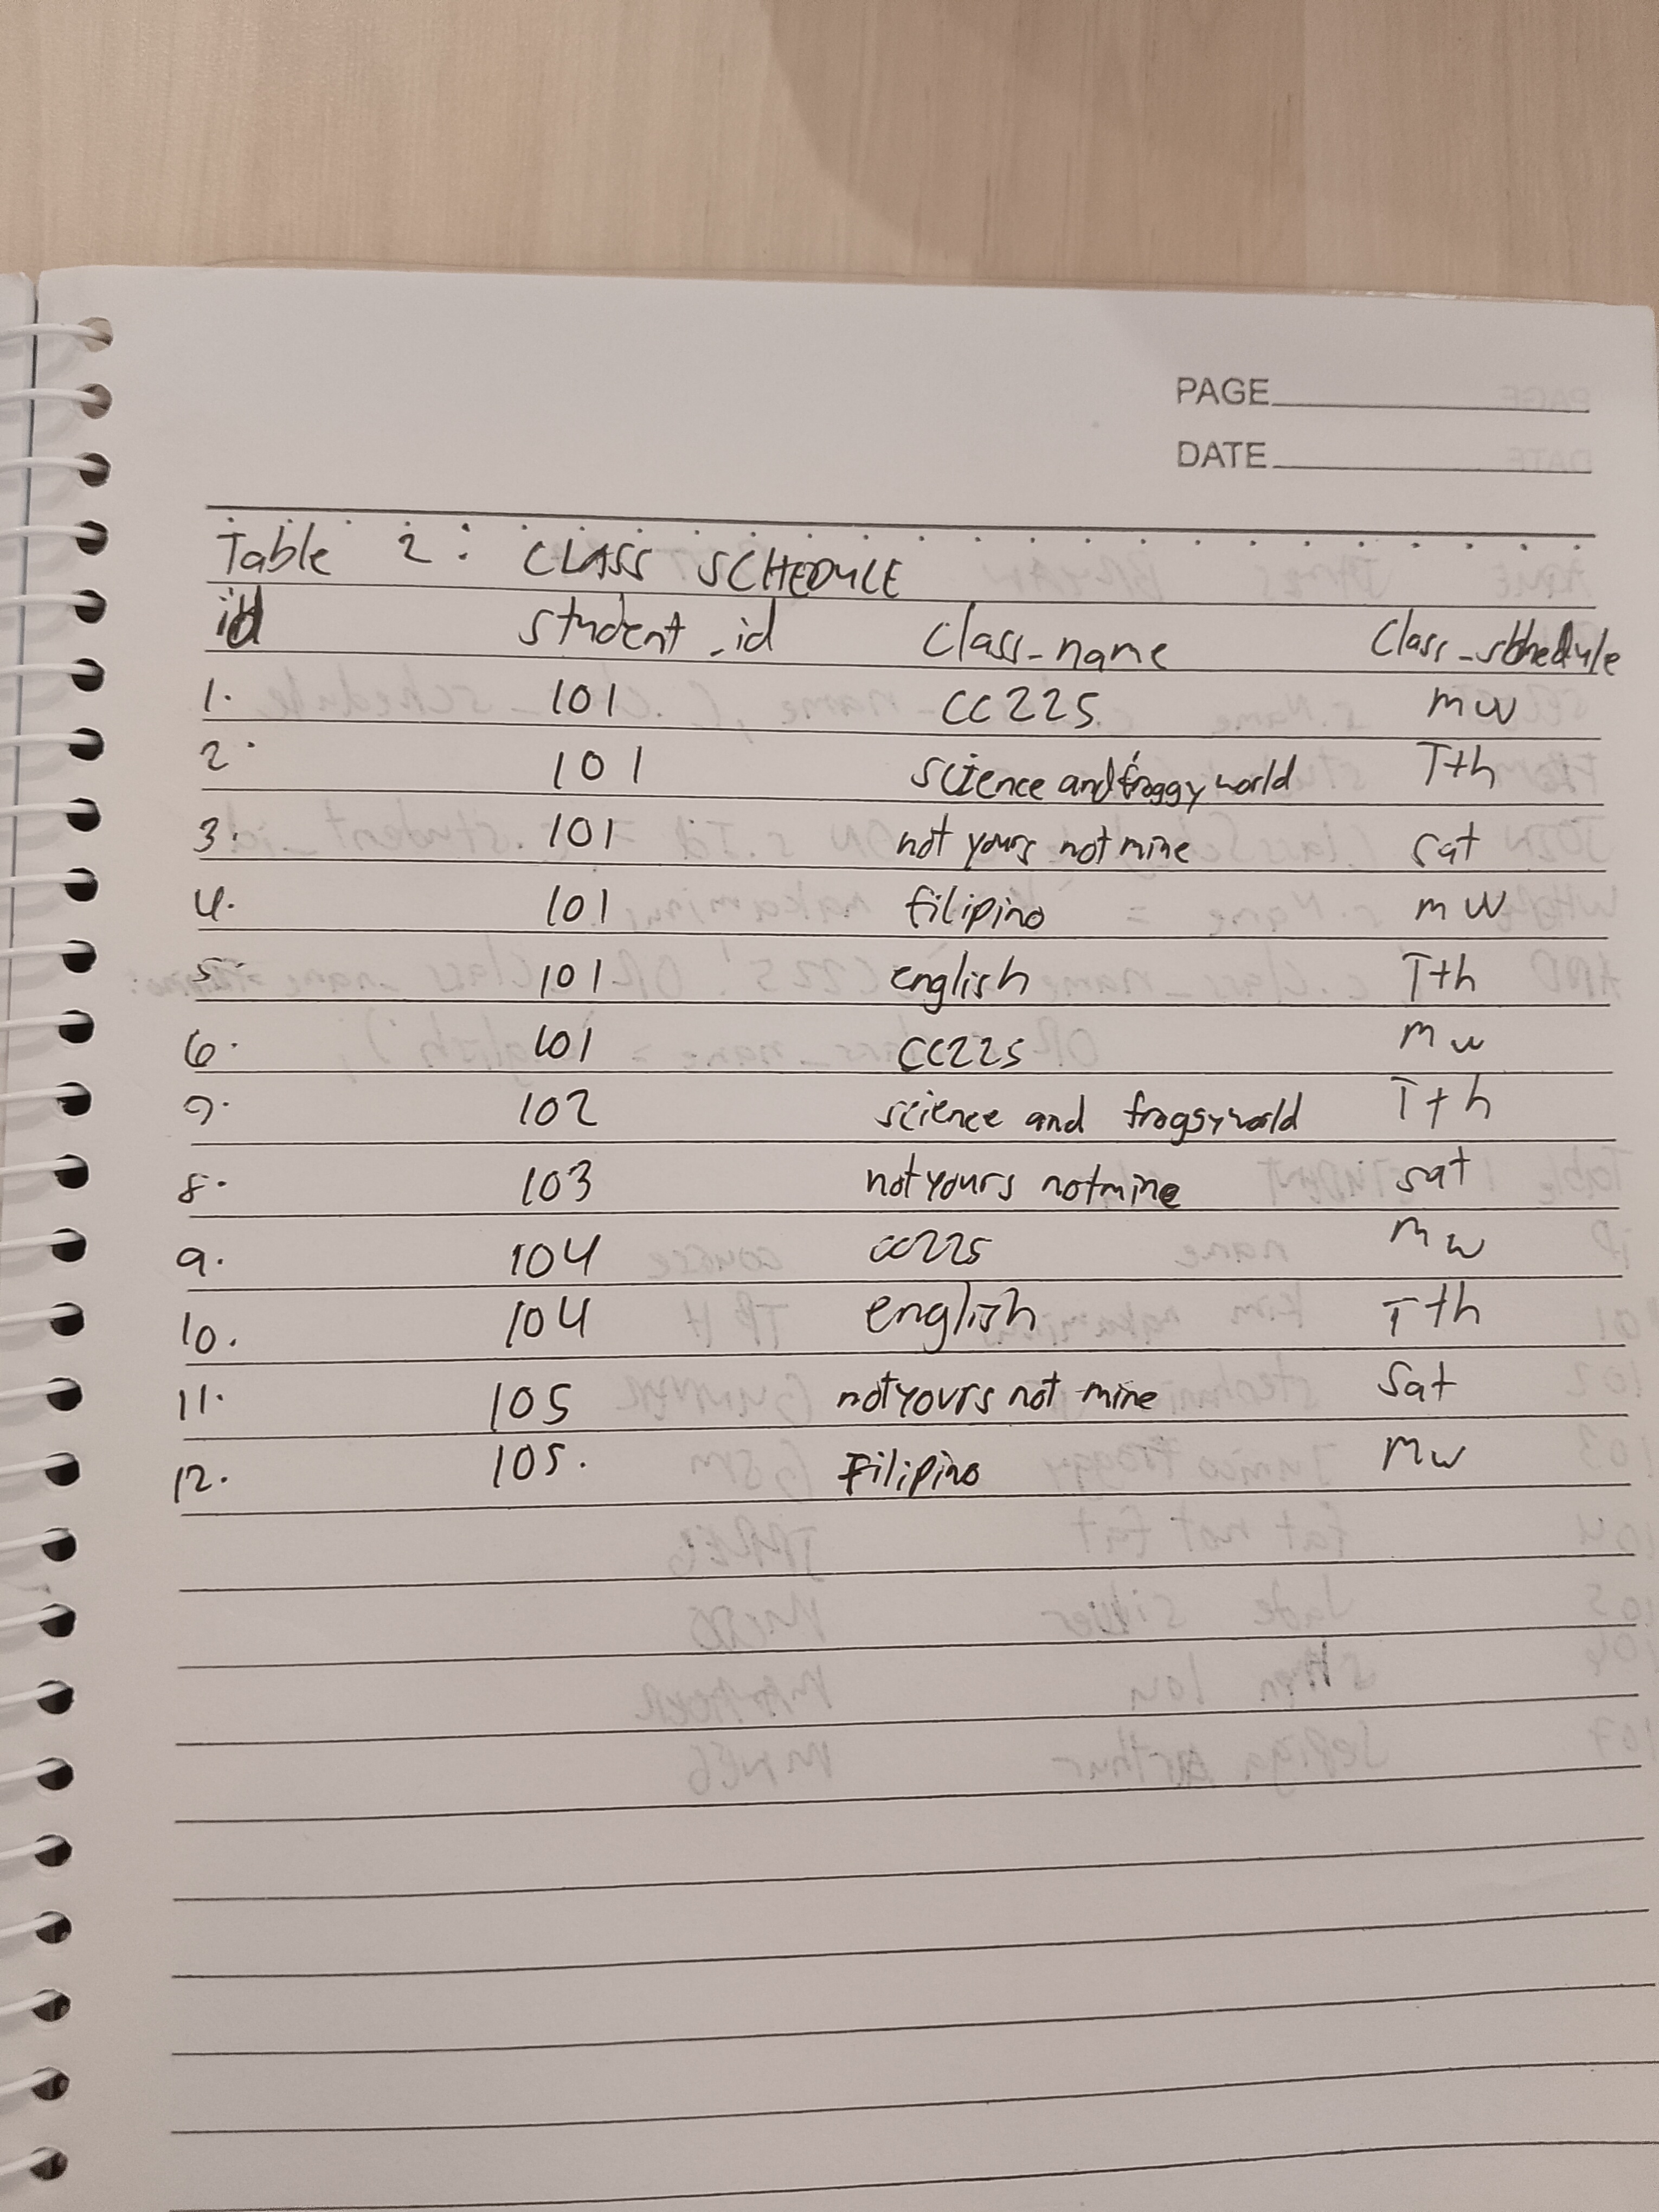 PAGE
DATE
Table 2: CLASS SCHEDULE
id student_id Class_name Class_schedule
1. 101 CC225 mw
2. 101 science and froggy world Tth
3. 101 not yours not mine sat
4. 101 filipino mw
5. 101 english Tth
6. 101 CC225 mw
7. 102 science and froggyworld Tth
8. 103 notyours notmine sat
9. 104 cc225 Mw
10. 104 english Tth
11. 105 notyours not mine Sat
12. 105. Filipino Mw